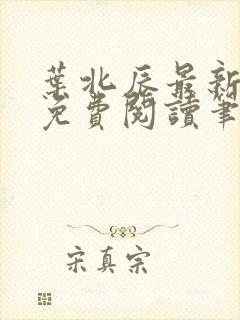 葉北辰最新
免費閱讀筆
宋真宗